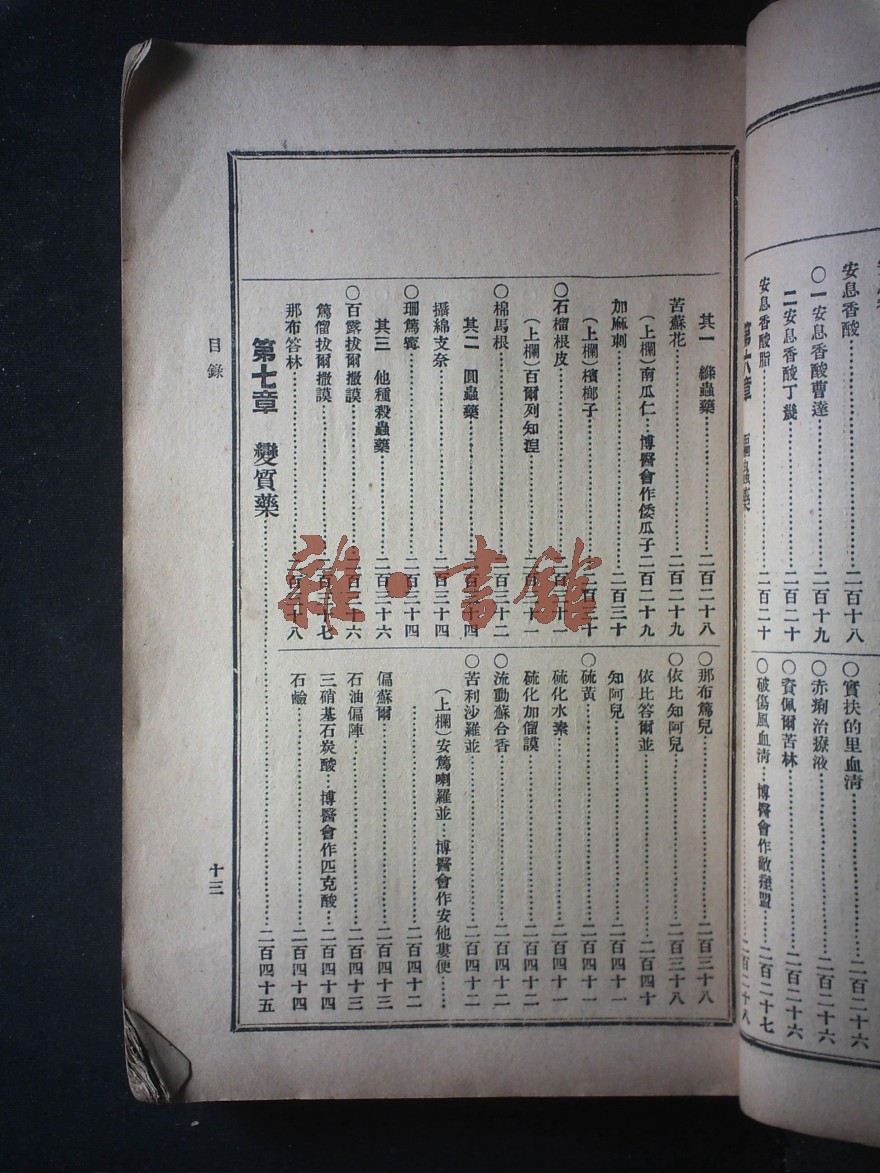 安息香酸………二百十八
〇一安息香酸曹達………二百十九
二安息香酸丁幾………二百二十
安息香酸脂………二百二十
第六章
〇實扶的里血清………二百二十六
〇赤痢治療液………二百二十六
〇資佩爾苦林………二百二十六
〇破傷風血清…博醫會作敵𤸷盟………二百二十七
二百二十八
其一 絛蟲藥………二百二十八
苦蘇花………二百二十九
(上欄)南瓜仁…博醫會作倭瓜子二百二十九
加麻刺………二百三十
(上欄)檳榔子………二百三十
〇石榴根皮………二百三十一
(上欄)百爾列知涅………二百三十一
〇棉馬根………二百三十二
其二 圓蟲藥………二百三十四
攝綿支奈………二百三十四
〇珊篤寗………二百三十四
其三 他種殺蟲藥………二百三十六
〇百露拔爾撒謨………二百三十六
篤僧拔爾撒謨………二百三十七
那布答林………二百三十八
〇那布篤兒………二百三十八
〇依比知阿兒………二百三十八
依比答爾並………二百四十
知阿兒………二百四十一
〇硫黃………二百四十一
硫化水素………二百四十一
硫化加僧謨………二百四十二
〇流動蘇合香………二百四十二
〇苦利沙羅並………二百四十二
(上欄)安篤喇羅並…博醫會作安他婁便……
………二百四十二
偏蘇爾………二百四十三
石油偏陣………二百四十三
三硝基石炭酸…博醫會作匹克酸………二百四十四
石鹼………二百四十四
第七章 變質藥………二百四十五
目錄
十三
雜·書館